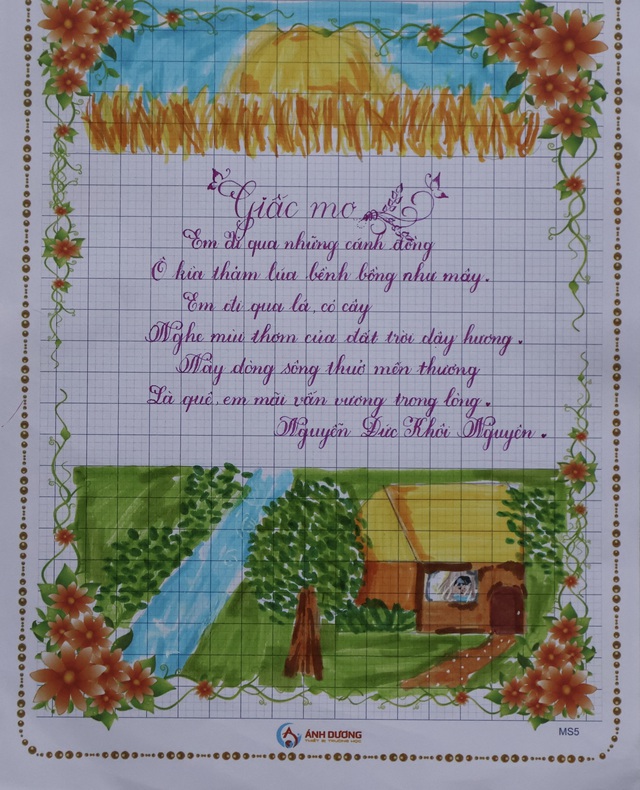 Giấc mơ
Em đi qua những cánh đồng
Ồ kìa thảm lúa bềnh bồng như mây.
Em đi qua lá, cỏ cây
Nghe mùi thơm của đất trời dậy hương.
Này dòng sông thuở mến thương
Là quê, em mãi vấn vương trong lòng.
Nguyễn Đức Khôi Nguyên.
ÁNH DƯƠNG
THIẾT BỊ TRƯỜNG HỌC
MS5